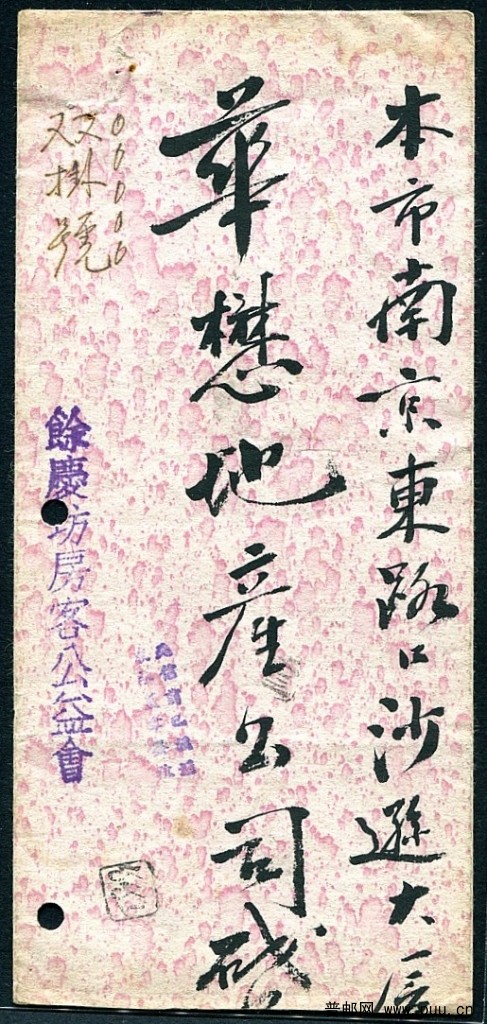 本市南京東路口沙遜大厦
華懋地產公司啟
双掛號
餘慶坊房客公益會
普邮网 www.puu.cn